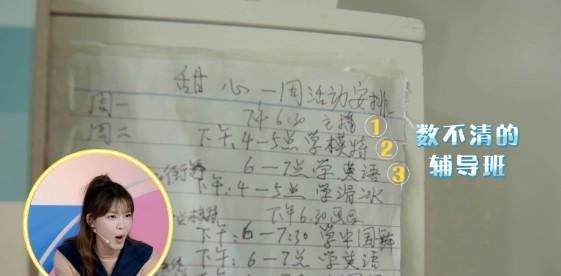 甜心一周活动安排
周一 下午6:30 主持 ①
周二 下午:4-5点学模特 ②
6-7点学英语 ③
下午:4-5点 学滑冰
下午6:30
模特 下午:6-7:30 学中国舞
下午:6-7点 学英语
数不清的
辅导班